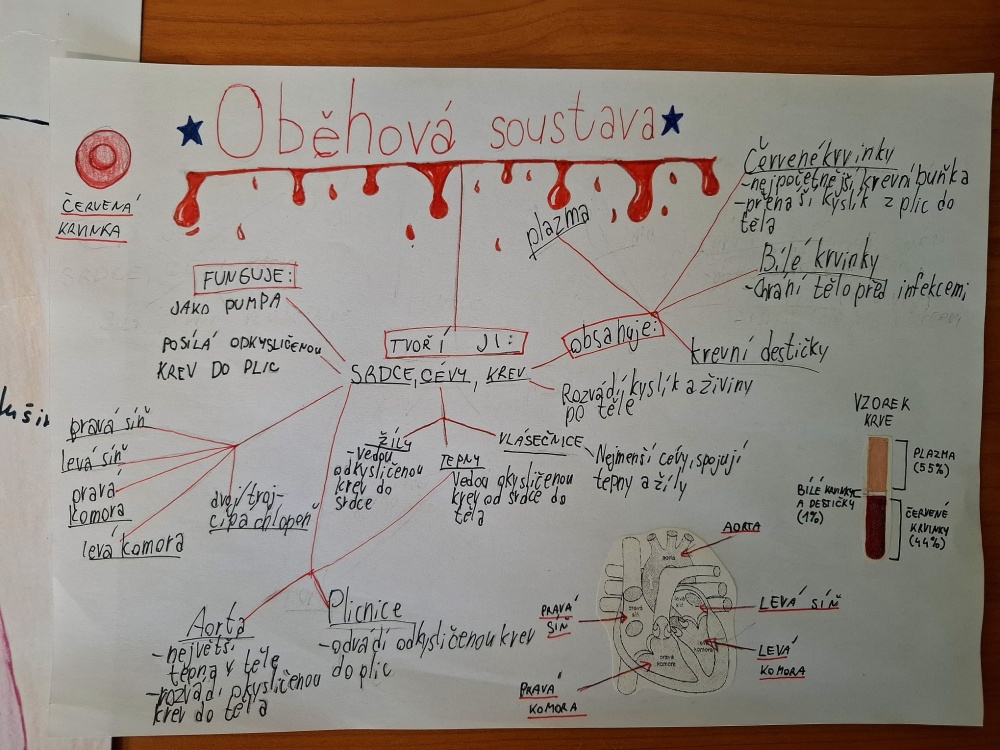 Oběhová soustava
ČERVENÁ
KRVINKA
FUNGUJE:
JAKO PUMPA
POSÍLÁ ODKYSLIČENOU
KREV DO PLIC
TVOŘÍ JI:
SRDCE, CÉVY, KREV
plazma
obsahuje:
Červené krvinky
-nejpočetnější krevní buňka
-přenáší kyslík z plic do
těla
Bílé krvinky
-chrání tělo před infekcemi
krevní destičky
Rozvádí kyslík a živiny
po těle
pravá síň
levá síň
pravá
komora
levá komora
dvoj/troj-
cípá chlopeň
ŽÍLY
-Vedou
odkysličenou
krev do
srdce
TEPNY
Vedou okysličenou
krev od srdce do
těla
VLÁSEČNICE
Nejmenší cévy, spojují
tepny a žíly
Aorta
-největší
tepna v těle
-rozvádí okysličenou
krev do těla
Plicnice
-odvádí odkysličenou krev
do plic
VZOREK
KRVE
PLAZMA
(55%)
BÍLÉ KRVINKY
A DESTIČKY
(1%)
ČERVENÉ
KRVINKY
(44%)
AORTA
PRAVÁ
SÍŇ
LEVÁ SÍŇ
LEVÁ
KOMORA
PRAVÁ
KOMORA
aorta
pravá
síň
levá
síň
levá
komora
pravá
komora